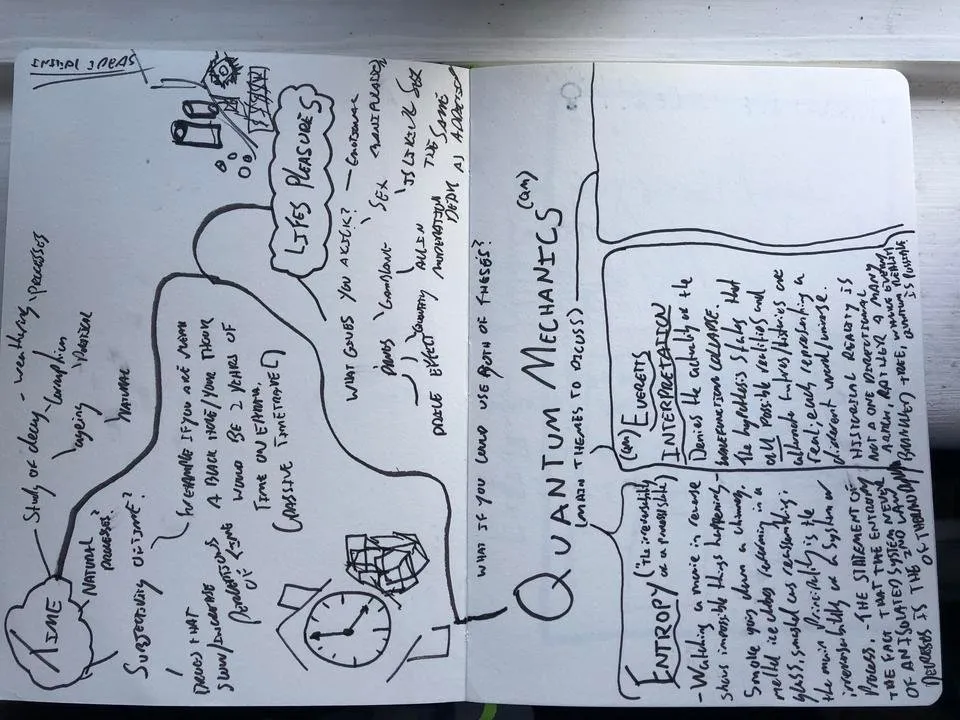 INITIAL IDEAS
TIME
Study of decay - weathering processes
ageing
Corruption
Physical
Natural
NATURAL
PROCESSES?
SUBJECTIVITY OF TIME?
For EXAMPLE IF YOU ARE NEAR
A BLACK HOLE 1 YOUR HOUR
WOULD BE 2 YEARS OF
TIME ON EARTH.
(PASSIVE TIMETRAVEL)
DRUGS THAT
SLOW/INCREASE
PERCEPTIONS
OF TIME
LIFES PLEASURES
WHAT GIVES YOU A KICK?
— EMOTIONAL
DRUGS
GAMBLING
SEX
IS LIKING SEX
THE SAME
AS ADDICTION
ALL IN
MODERATION
DEATH
PRICE EFFECT
WHAT IF YOU COULD USE BOTH OF THESES?
QUANTUM MECHANICS (QM)
(MAIN THEMES TO DISCUSS)
ENTROPY ("The irreversibility
of a process")
- Watching a movie in reverse
shows impossible things happening -
Smoke going down a chimney,
melted ice cubes reforming in a
glass, smashed cars reassembling:
the main Principility is the
irreversibility of a System or
Process. - THE STATEMENT OF
THE FACT THAT THE ENTROPY
OF AN ISOLATED SYSTEM NEVER
DECREASES IS THE 2ND LAW
OF THERMO
(QM) EVERETS
INTERPRETATION
Denies the actuality of the
wavefunction collapse.
The hypothesis states that
all possible realities and
alternate futures/histories are
real, each representing a
different world/universe.
HISTORICAL REALITY IS
NOT A ONE DIRECTIONAL
ARROW, RATHER A MANY
BRANCHED TREE, WHERE EVERY
QUANTUM REALITY
IS POSSIBLE